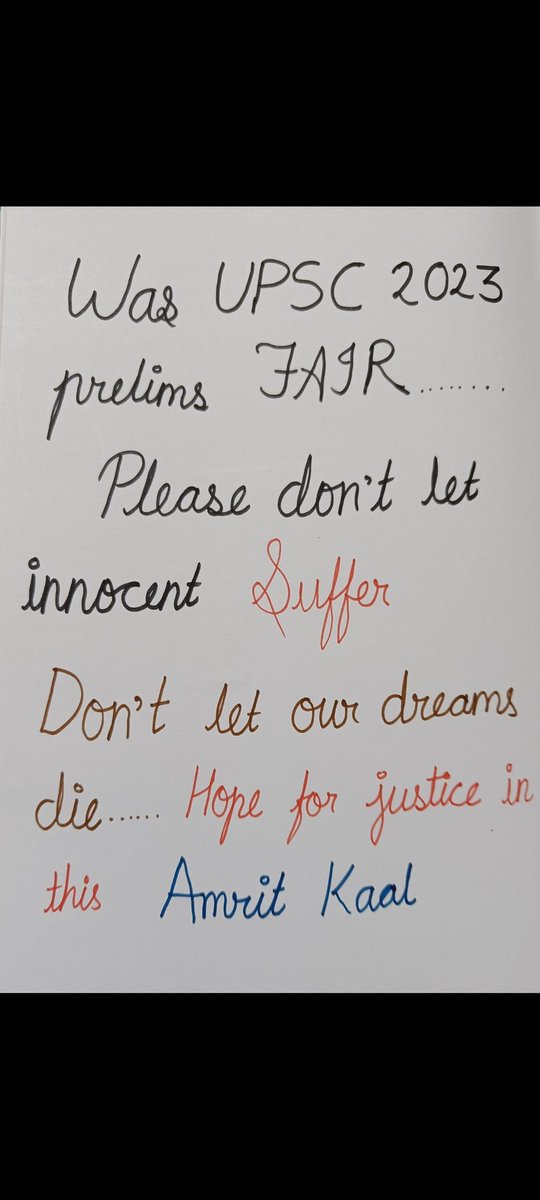 Was UPSC 2023
prelims FAIR........
Please don't let
innocent Suffer
Don't let our dreams
die...... Hope for justice in
this Amrit Kaal